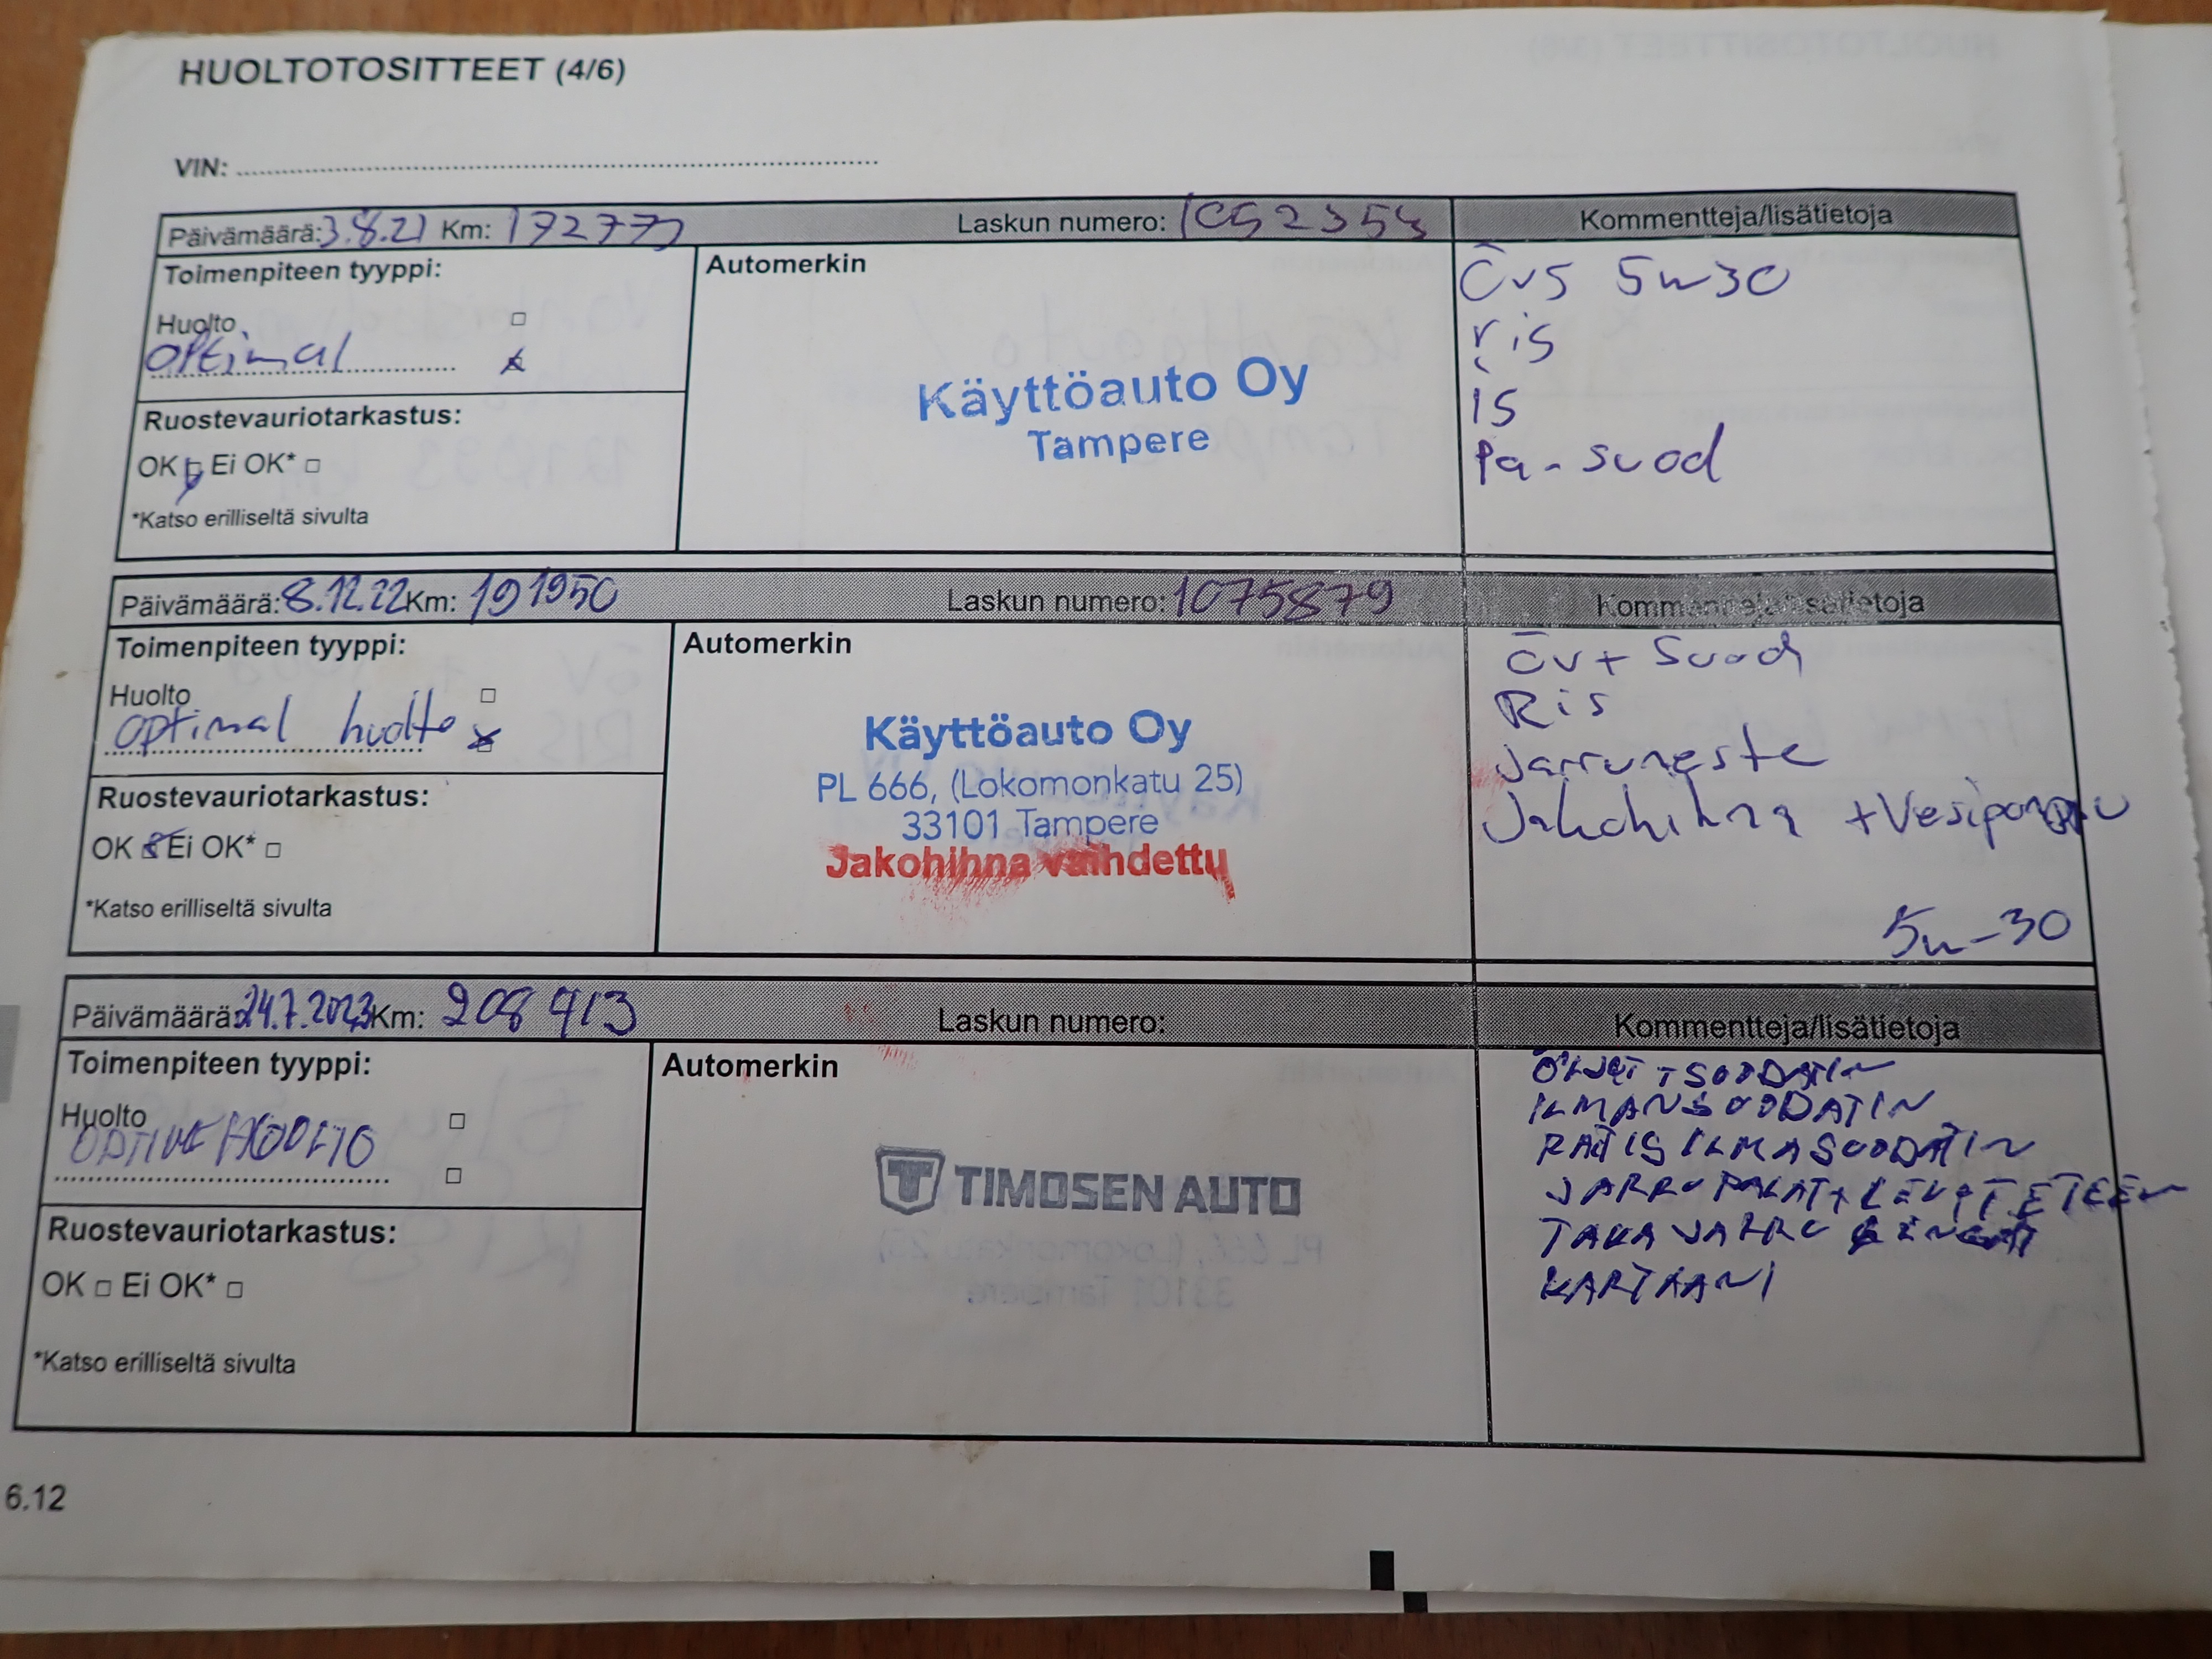 HUOLTOTOSITTEET (4/6)
VIN:
Päivämäärä: 3.8.21 Km: 172773 Laskun numero: Kommentteja/lisätietoja
Toimenpiteen tyyppi: Automerkin
Huolto
optimal
Ruostevauriotarkastus:
OK Ei OK*
*Katso erilliseltä sivulta
Käyttöauto Oy
Tampere
övs 5w30
ris
is
Pa-suod
Päivämäärä: 8.12.22 Km: 191950 Laskun numero: 1075879 Kommentteja/lisätietoja
Toimenpiteen tyyppi: Automerkin
Huolto
optimal huolto
Ruostevauriotarkastus:
OK Ei OK*
*Katso erilliseltä sivulta
Käyttöauto Oy
PL 666, (Lokomonkatu 25)
33101 Tampere
Jakohihna vaihdettu
öv + suod
Ris
Jarruneste
Jakohihna + Vesipumppu
5w-30
Päivämäärä: 24.7.2023 Km: 208913 Laskun numero: Kommentteja/lisätietoja
Toimenpiteen tyyppi: Automerkin
Huolto
HUOLTO
Ruostevauriotarkastus:
OK Ei OK*
*Katso erilliseltä sivulta
TIMOSEN AUTO
ÖLJYT + SUODATIN
ILMANSUODATIN
RATIS ILMASUODATIN
JARRUPALAT + LEVYT ETEEN
TAKA JARRU
KARTAANI
6.12